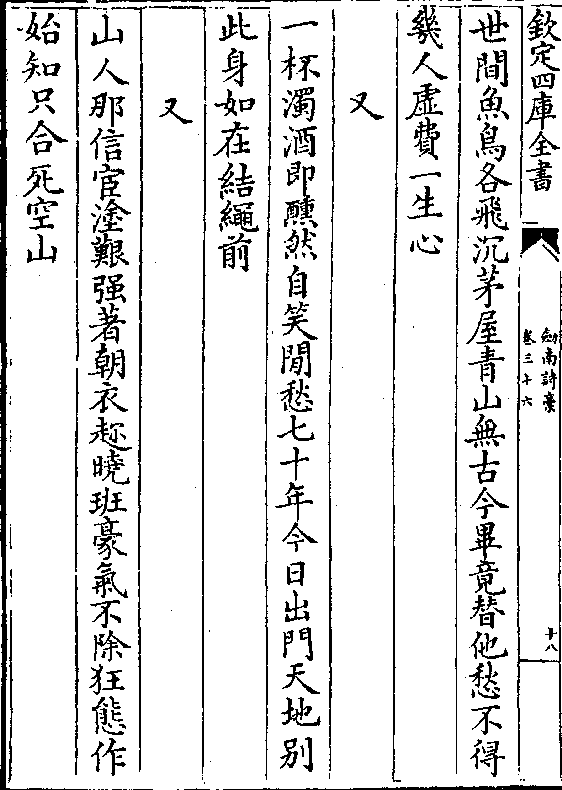 欽定四庫全書
劍南詩槀
卷三十六
十八
世間魚鳥各飛沉茅屋青山無古今畢竟替他愁不得
幾人虛費一生心
又
一杯濁酒即醺然自笑閒愁七十年今日出門天地别
此身如在結繩前
又
山人那信宦塗艱强著朝衣趂曉班豪氣不除狂態作
始知只合死空山